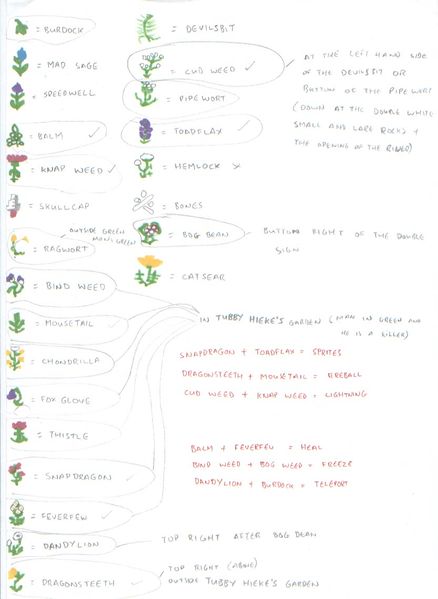 = BURDOCK
= MAD SAGE
= SPEEDWELL
= BALM ✓
= KNAP WEED ✓
= SKULLCAP
OUTSIDE GREEN
MONS GREEN
= RAGWORT
= BIND WEED
= MOUSETAIL
= CHONDRILLA
= FOX GLOVE
= THISTLE
= SNAPDRAGON ✓
= FEVERFEW ✓
= DANDYLION
TOP RIGHT AFTER BOG BEAN
= DRAGONSTEETH ✓
TOP RIGHT (ABOVE)
OUTSIDE TUBBY HIEKE'S GARDEN
= DEVILSBIT
= CUD WEED ✓
= PIPEWORT
= TOADFLAX ✓
= HEMLOCK ×
= BONES
= BOG BEAN
BUTTOM RIGHT OF THE DOUBLE
SIGN
= CATSEAR
AT THE LEFT HAND SIDE
OF THE DEVILSBIT OR
BUTTON OF THE PIPE WERT
(DOWN AT THE DOUBLE WHITE
SMALL AND LARE ROCKS +
THE OPENING OF THE RIVER)
IN TUBBY HIEKE'S GARDEN (MAN IN GREEN AND
HE IS A KILLER)
SNAPDRAGON + TOADFLAX = SPRITES
DRAGONSTEETH + MOUSETAIL = FIREBALL
CUD WEED + KNAP WEED = LIGHTNING
BALM + FEVERFEW = HEAL
BIND WEED + BOG WEED = FREEZE
DANDYLION + BURDOCK = TELEPORT